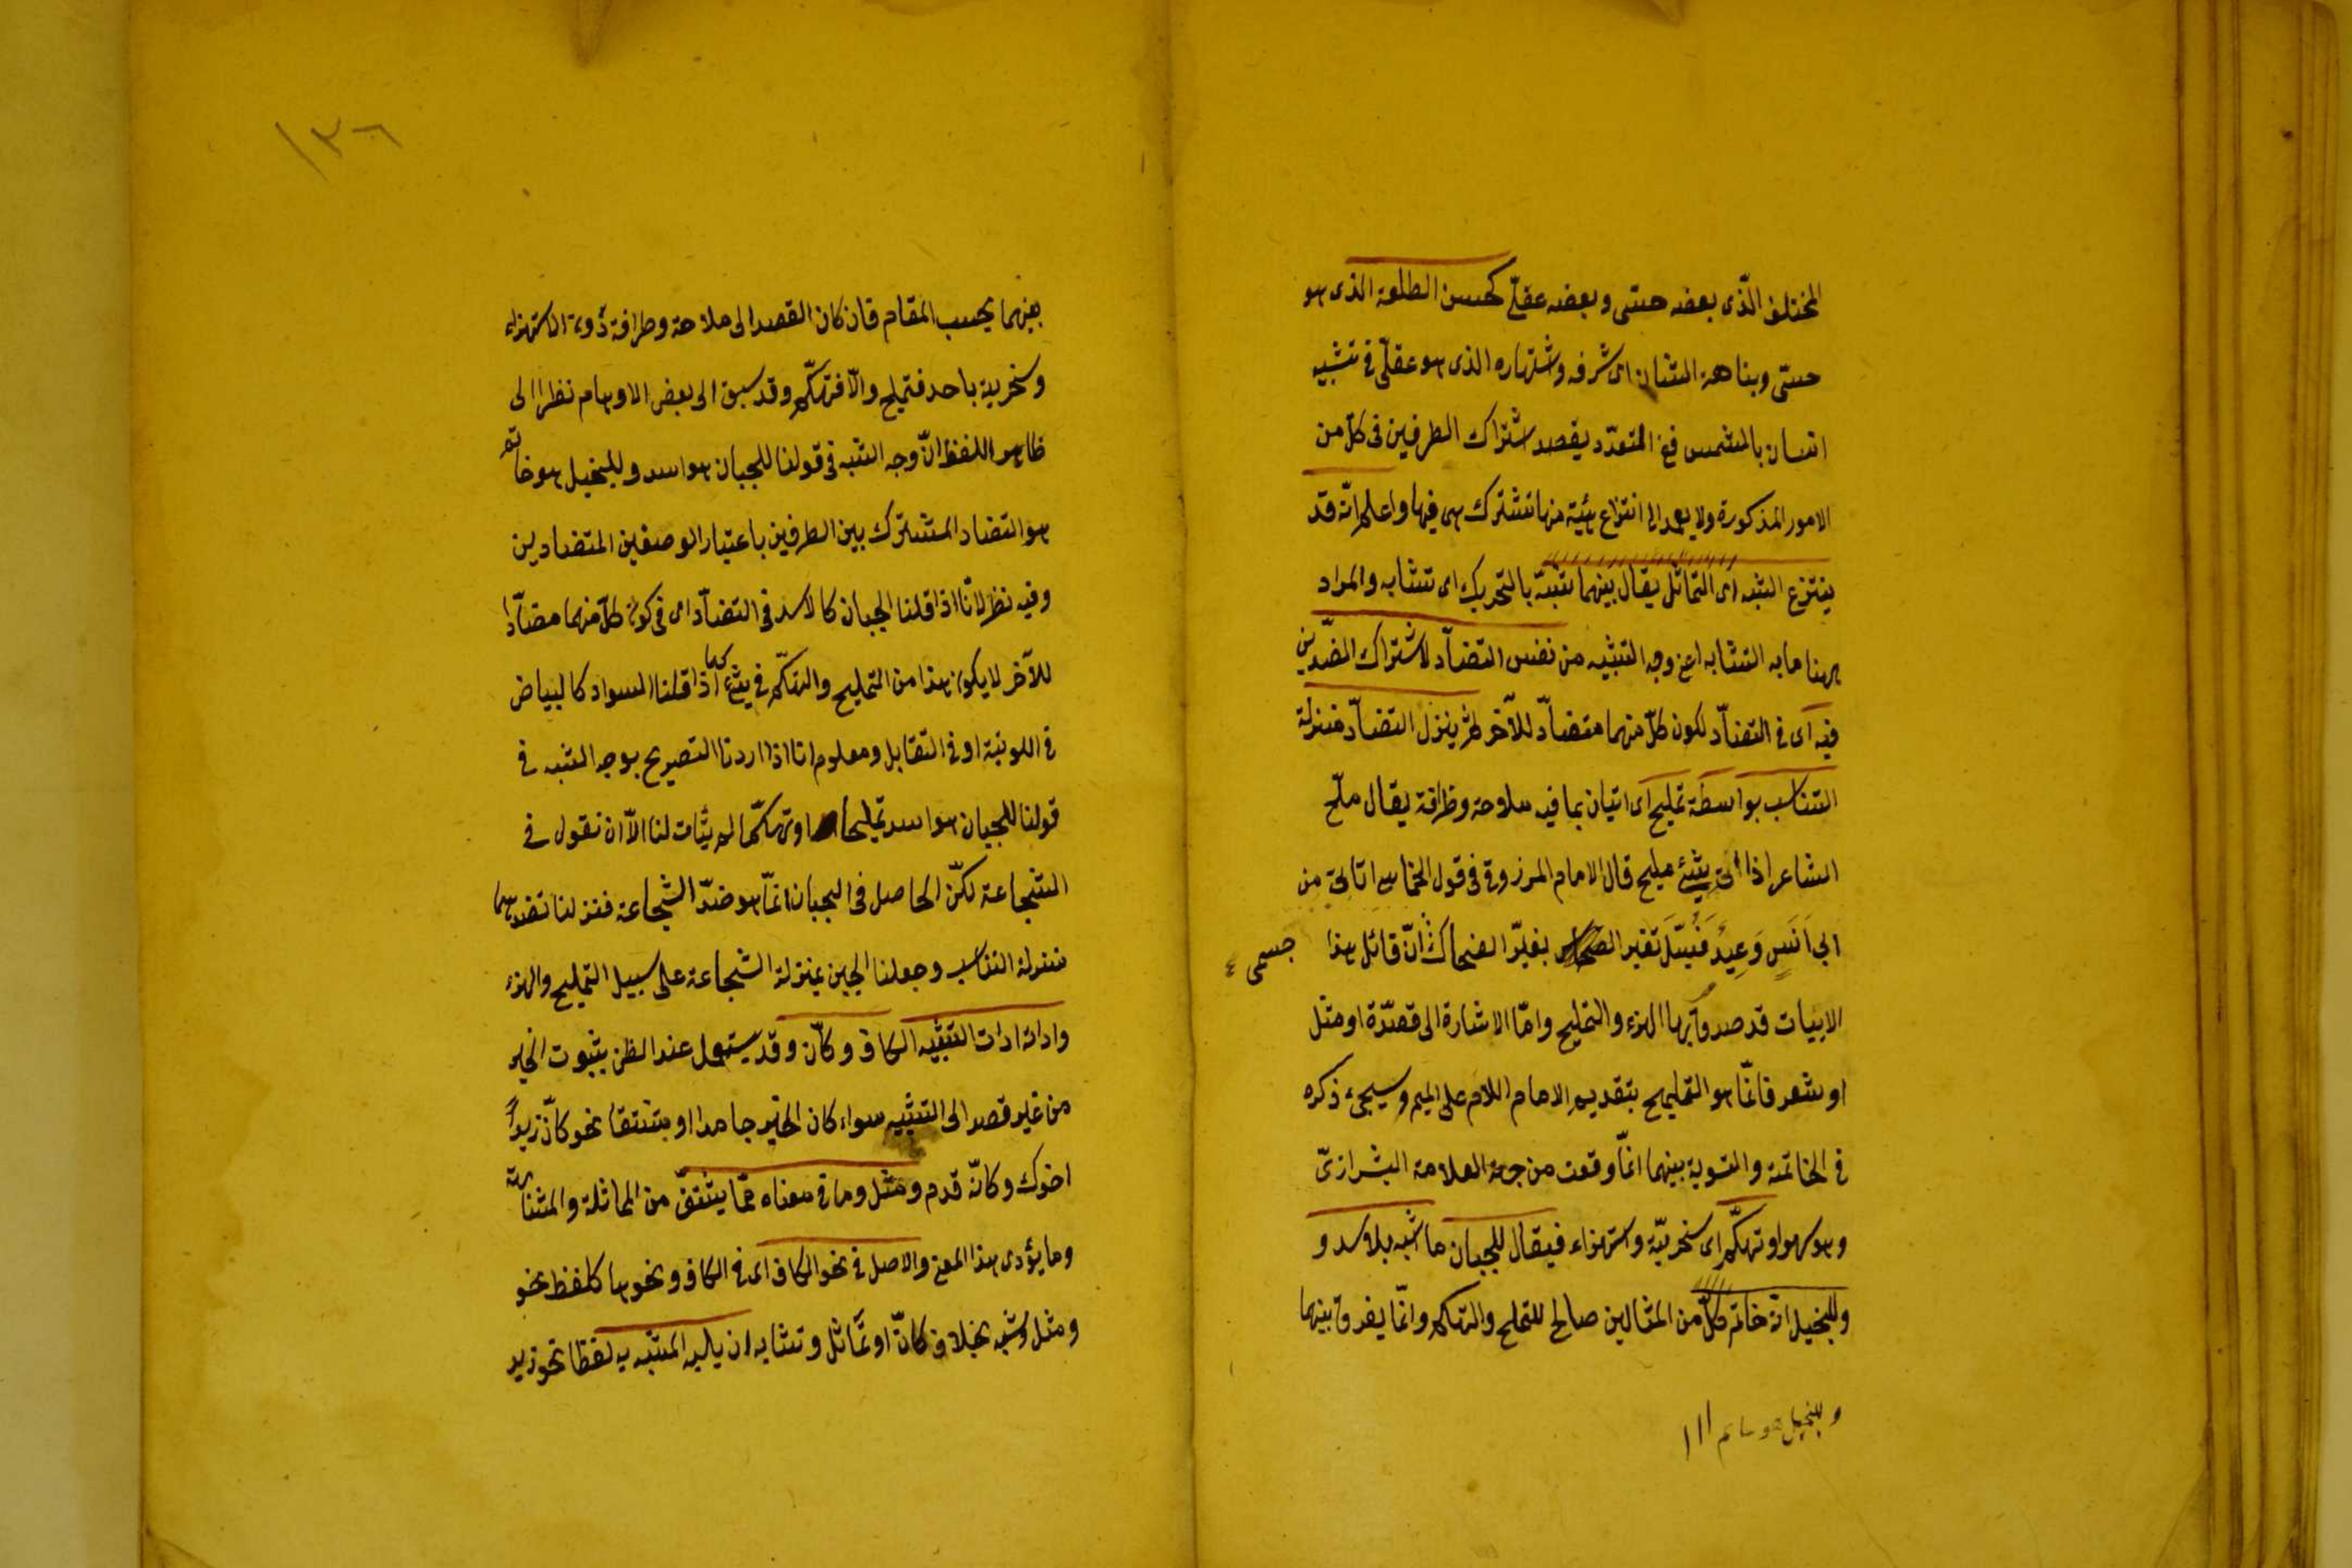 المختلف الذّى بعضه حسّى وبعضه عقلّى كحسن الطلعة الذى هو
حسّى ونباهة الشان اى شرفه واشتهاره الذى هو عقلّى فى تشبيه
انسان بالشمس ففى المتعدّد يقصد اشتراك الطرفين فى كلّ من
الامور المذكورة ولا يعمد الى انتزاع هيئة منها تشترك هى فيها واعلم انّه قد
ينتزع الشبه اى التماثل يقال بينهما شبه بالتحريك اى تشابه والمراد
ههنا ما به التشابه اعنى وجه التشبيه من نفس التضادّ لاشتراك الضدّين
فيه اى فى التضادّ لكون كلّ منهما متضادّ للآخر ثم ينزل التضادّ منزلة
التناسب بواسطة تمليح اى اتيان بما فيه ملاحة وظرافة يقال ملّح
الشاعر اذا اتى بشئ مليح قال الامام المرزوقى فى قول الحماسى اتانى من
ابى اَنَسٍ وَعِيدٌ فَسُلّ تغيّر الضحاك جسمى انّ قائل هذا
الابيات قد صدق بها الهزء والتمليح وامّا الاشارة الى قصّة او مثل
او شعر فانّما هو التلميح بتقديم اللام على الميم وسيجئ ذكره
فى الخاتمة والتسوية بينهما انمّا وقعت من جهة العلامة الشيرازىّ
وهو سهو او تهكّم اى سخريّة واستهزاء فيقال للجبان ما اشبه بالاسد و
وللبخيل انّه حاتم كلّ من المثالين صالح للتمليح والتهكم وانّما يفرق بينهما
وللبخيل هو حاتم ااا
١٣٦
بينهما بحسب المقام فان كان القصد الى ملاحة وظرافة دون استهزاء
وسخرية باحد فتمليح والّا فتهكّم وقد سبق الى بعض الاوهام نظرا الى
ظاهر اللفظ انّ وجه الشبه فى قولنا للجبان هو اسد وللبخيل هو حاتم
هو التضاد المشترك بين الطرفين باعتبار الوصفين المتضادين
وفيه نظر لانّا اذا قلنا الجبان كالاسد فى التضادّ اى فى كون كلّ منهما مضادّا
للآخر لا يكون هذا من التمليح والتهكّم فى شئ كما اذا قلنا السواد كالبياض
فى اللونية او فى التقابل ومعلوم انا اذا اردنا التصريح بوجه الشبه فى
قولنا للجبان هو اسد تمليحا او تهكّما لم يتات لنا الّا ان نقول فى
الشجاعة لكنّ الحاصل فى الجبان انمّا هو ضدّ الشجاعة فنزلنا تضادهما
منزلة التناسب وجعلنا الجبن بمنزلة الشجاعة على سبيل التمليح والهزء
واداته ادات التشبيه الكاف وكانّ وقد يستعمل عند الظن بثبوت الخبر
من غير قصد الى التشبيه سواء كان الخبر جامدا او مشتقا نحو كانّ زيداً
اخوك وكانّه قدم ومثل وما فى معناه ممّا يشتقّ من المماثلة والمشابهة
وما يؤدى هذا المعنى والاصل فى نحو الكاف اى فى الكاف ونحوها كلفظ نحو
ومثل وشبه بخلاف كانّ او تماثل وتشابه ان يليه المشبه به لفظا نحو زيد